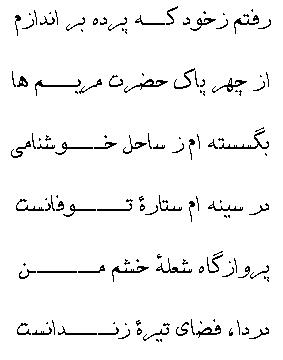 رفتم زخود که پرده بر اندازم
از چهر پاک حضرت مریم ها
بگسسته ام ز ساحل خوشنامی
در سینه ام ستارۀ توفانست
پروازگاه شعلۀ خشم من
دردا، فضای تیرۀ زندانست